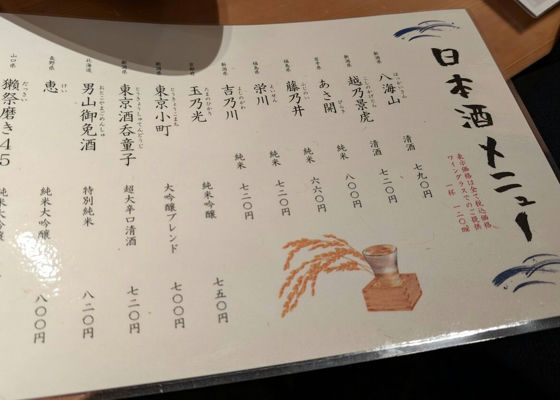 日本酒メニュー
表示価格は全て税込価格
ワイングラスでのご提供
一杯 一二〇㎖
新潟県 八海山 はっかいさん 清酒 七九〇円
新潟県 越乃景虎 清酒 七二〇円
岩手県 あさ開 びらき 純米 八〇〇円
福島県 藤乃井 ふじのい 純米 六六〇円
福島県 栄川 えいせん 純米 七二〇円
新潟県 吉乃川 よしのがわ 純米 七二〇円
玉乃光 たまのひかり 純米吟醸 七五〇円
東京小町 大吟醸ブレンド 七〇〇円
新潟県 東京酒呑童子 超大辛口清酒 七二〇円
北海道 男山御免酒 おとこやまごめんしゅ 特別純米 八二〇円
長野県 恵 けい 純米大吟醸 八〇〇円
山口県 獺祭磨き45 だっさい 純米大吟醸